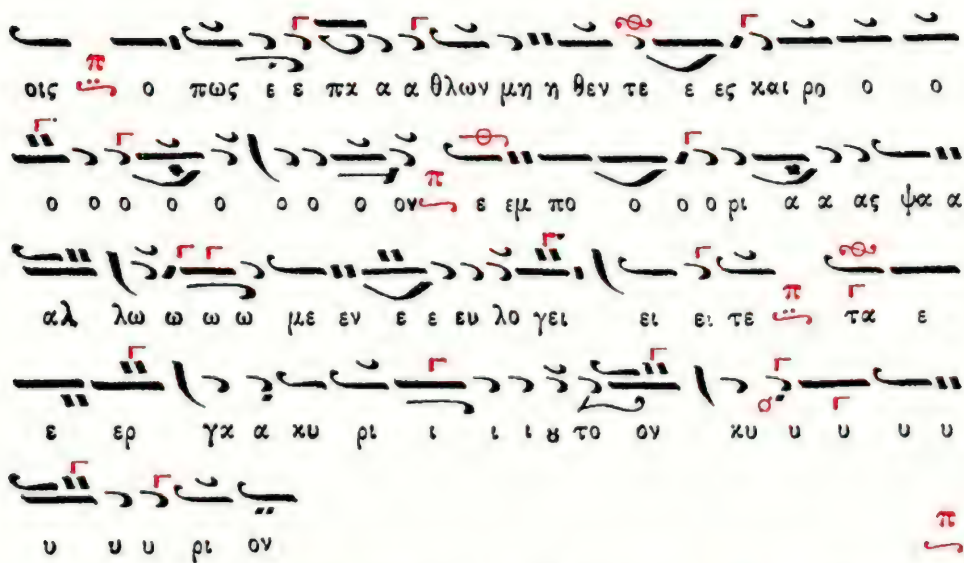 οις π ο πως ε ε πα α α θλων μη η θεν τε ε ες και ρο ο ο
ο ο ο ο ο ο ο ο ον π ε εμ πο ο ο ο ρι α α ας ψα α
αλ λω ω ω ω με εν ε ε ευ λο γει ει ει τε π τα ε
ε ερ γα α κυ ρι ι ι ι ȣ το ον κυ υ υ υ υ
υ υ υ ρι ον π